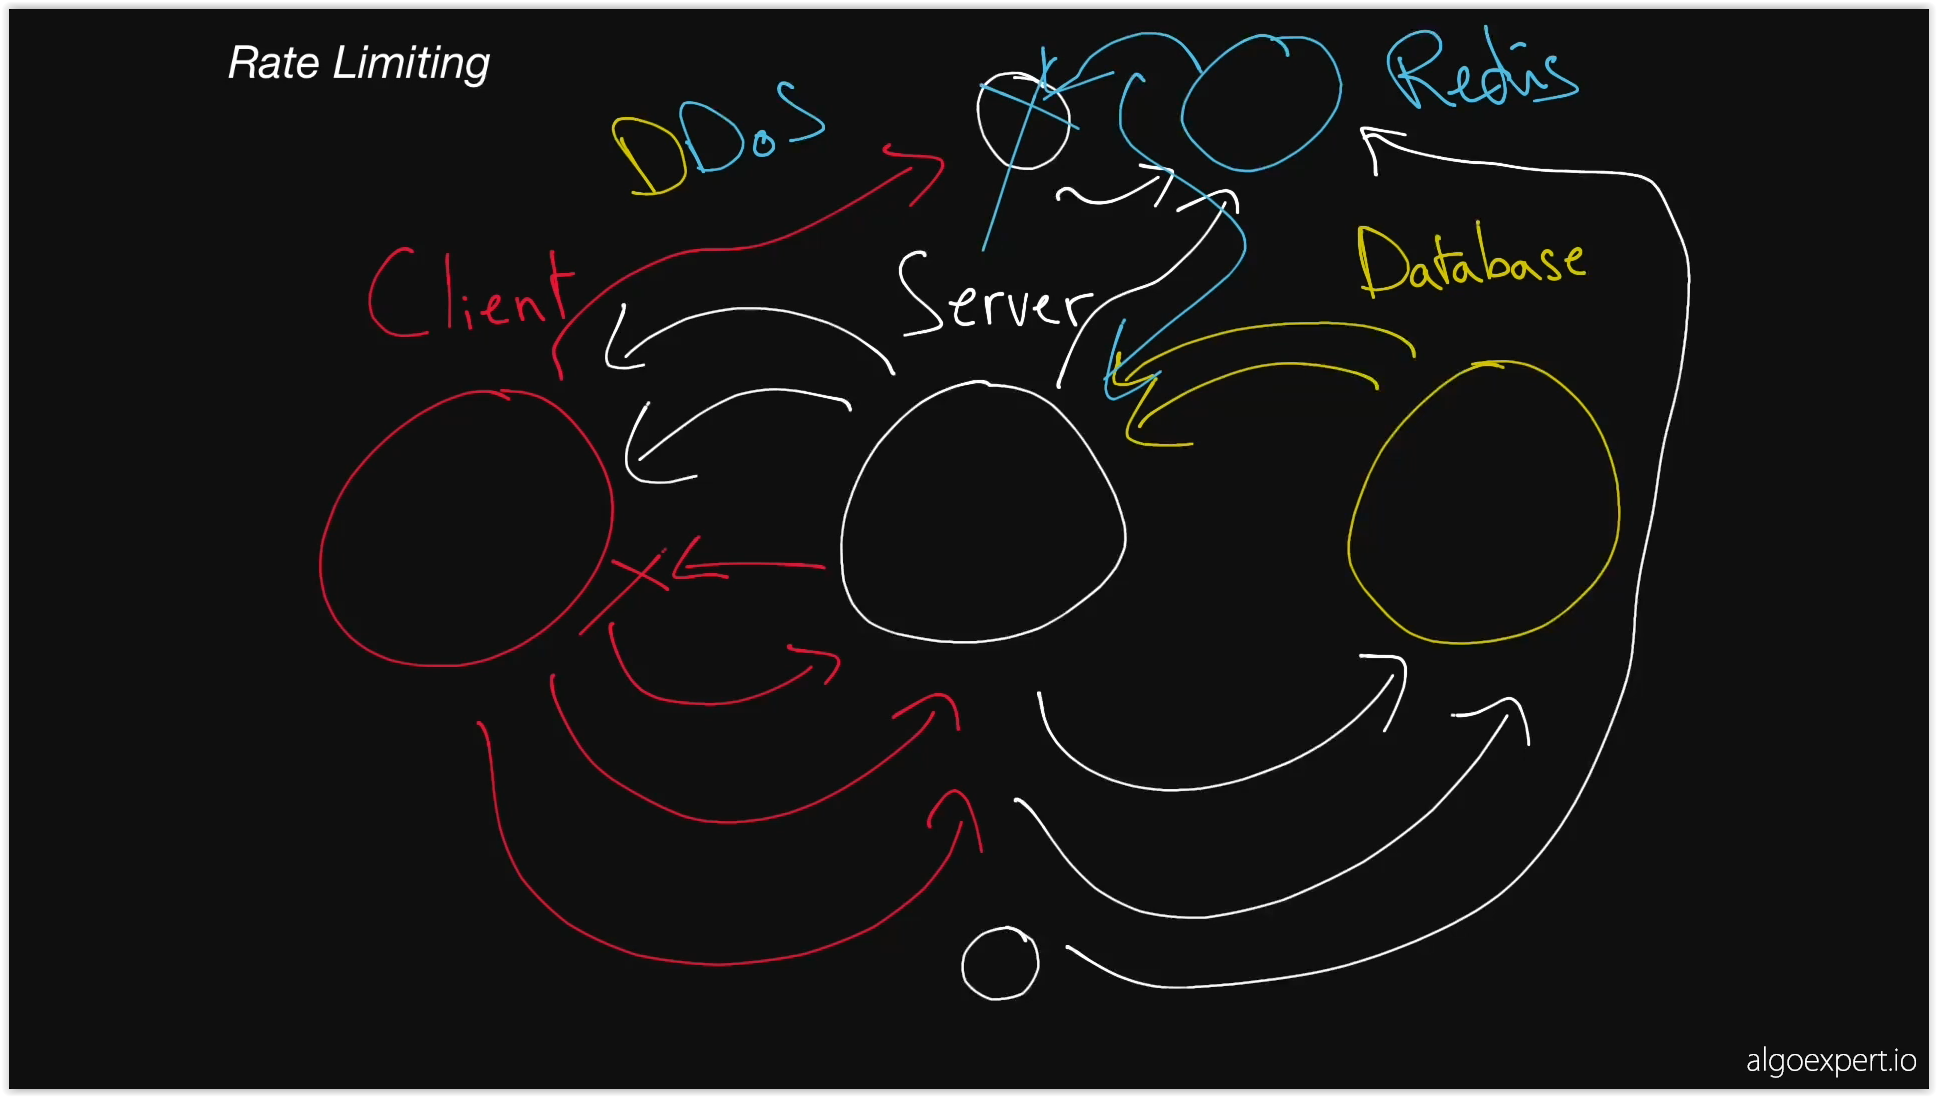 Rate Limiting
DDoS
Redis
Client
Server
Database
algoexpert.io